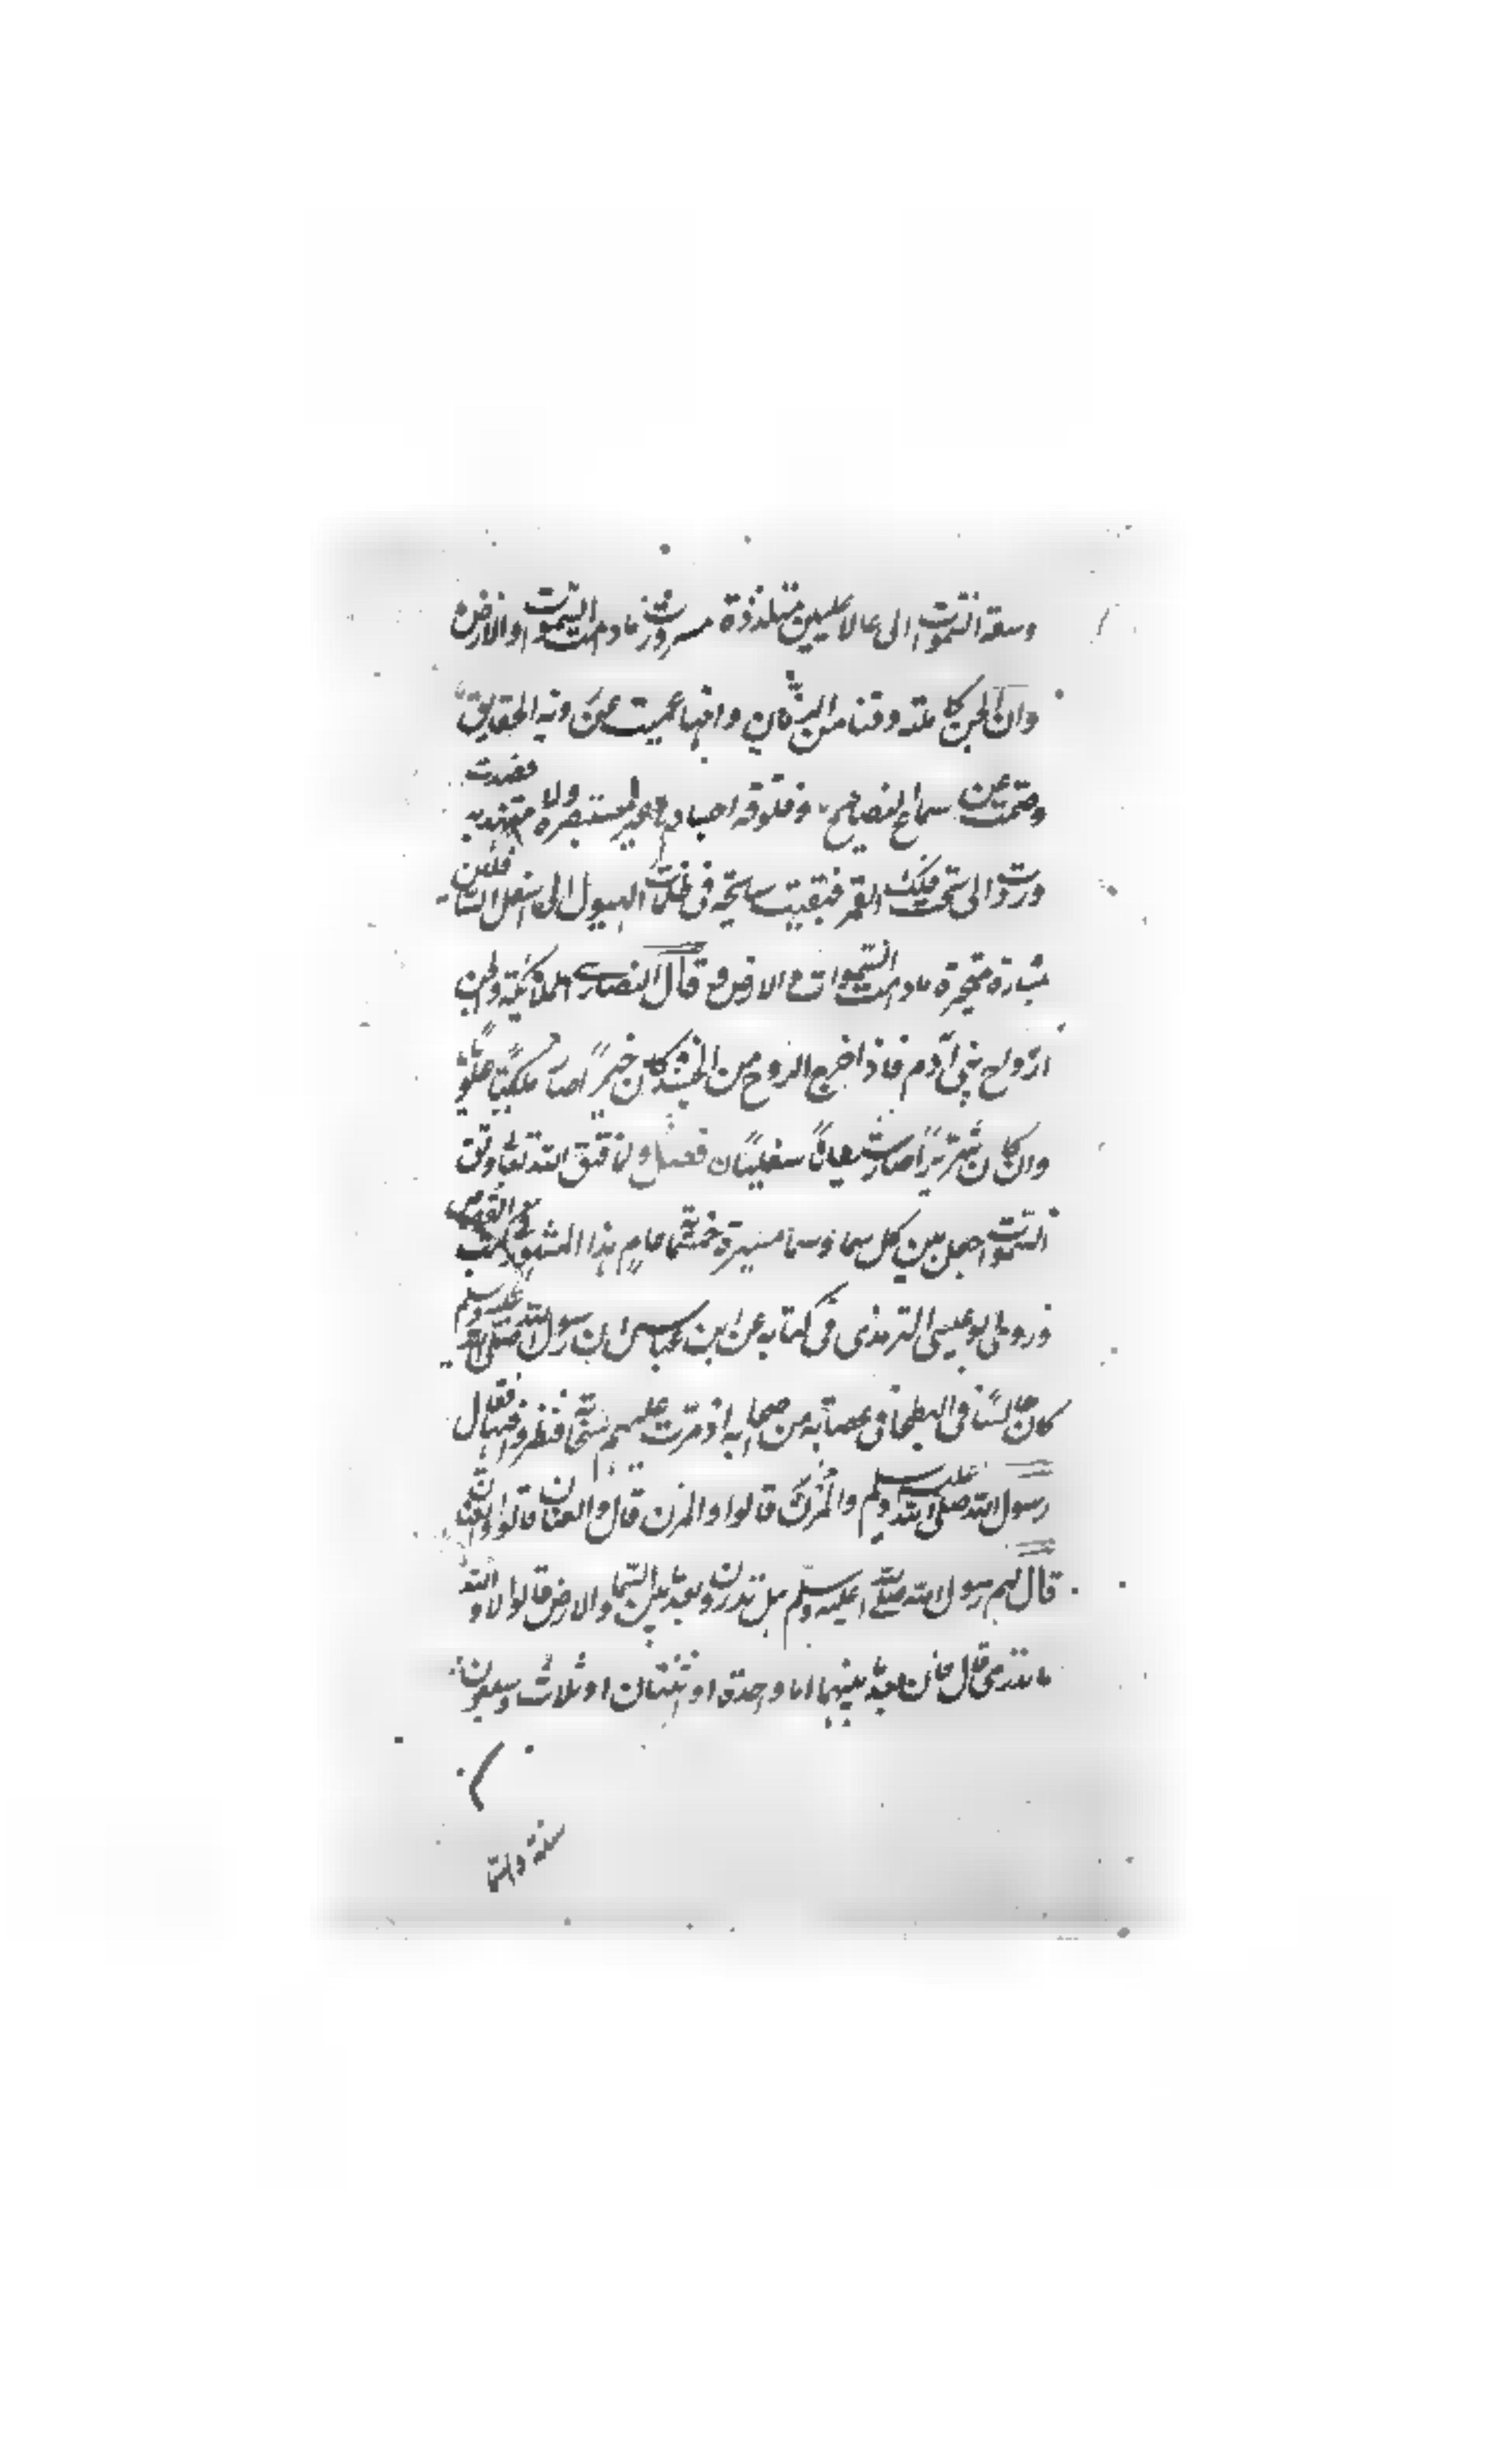 وسعة السموات الى عالا عليين متلذذة مسرورة ما دامت السموات والارض
وان الجن كا وقتا من وانها عميت عن الحقايق
وصمت عن سماع النصايح وفلوقه اجساد غير مستبصرة ولا مهتدية فصدت
وردت الى تحت فلك القمر فبقيت سايحة فى ظلمات الهيول الى اسفل السافلين
متحيرة ما دامت السموات والارض وقال النصارى الملائكة والجن
ارواح بنى آدم فاذا خرج الروح من الجسد كان خيرا صار ملكيا علويا
وان كان شريرا صار شيطانا سفليا فصل ولما فتق الله تعا وتق
السموات جعل بين كل سما وسما مسيرة خمسمائة عام هذا المشهور
وروى ابو عيسى الترمذى فى كتابه عن ابن عباس ان رسول الله صلى الله عليه وسلم
كان جالسا فى البطحا فى عصابة من صحابه اذ مرت عليهم سحابة فنظروا اليها فقال
رسول الله صلى الله عليه وسلم والمزن قالوا والمزن قال والعنان قالوا والعنان
قال لهم رسول الله صلى الله عليه وسلم هل تدرون بعد بين السما والارض قالوا لا والله
ما ندرى قال فان بعد بينهما اما واحدة او اثنتان او ثلاث وسبعون
سنة والسما